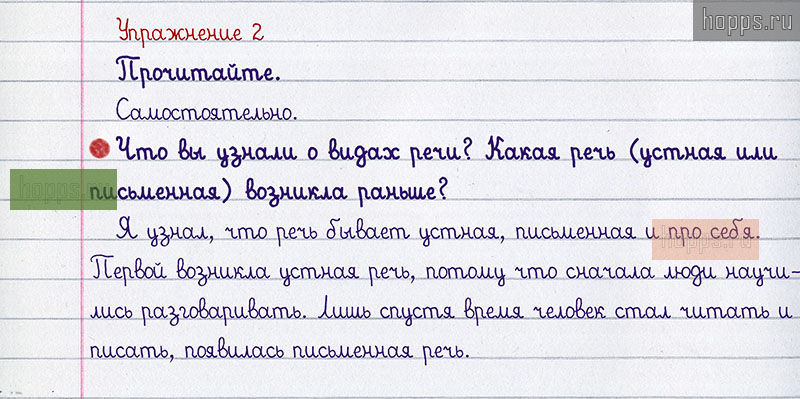 hopps.ru
Упражнение 2
Прочитайте.
Самостоятельно.
Что вы узнали о видах речи? Какая речь (устная или
hopps.ru
письменная) возникла раньше?
Я узнал, что речь бывает устная, письменная и про себя.
hopps.ru
Первой возникла устная речь, потому что сначала люди научи-
лись разговаривать. Лишь спустя время человек стал читать и
писать, появилась письменная речь.